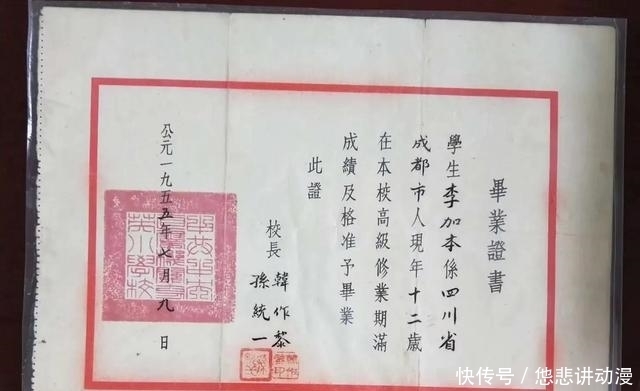 畢業證書
學生李加李係四川省
成都市人現年十二歲
在本校高級修業期滿
成績及格准予畢業
此證
校長 韓作黎
孫統一
公元一九五五年七月九日
快传号／他悲讲动漫